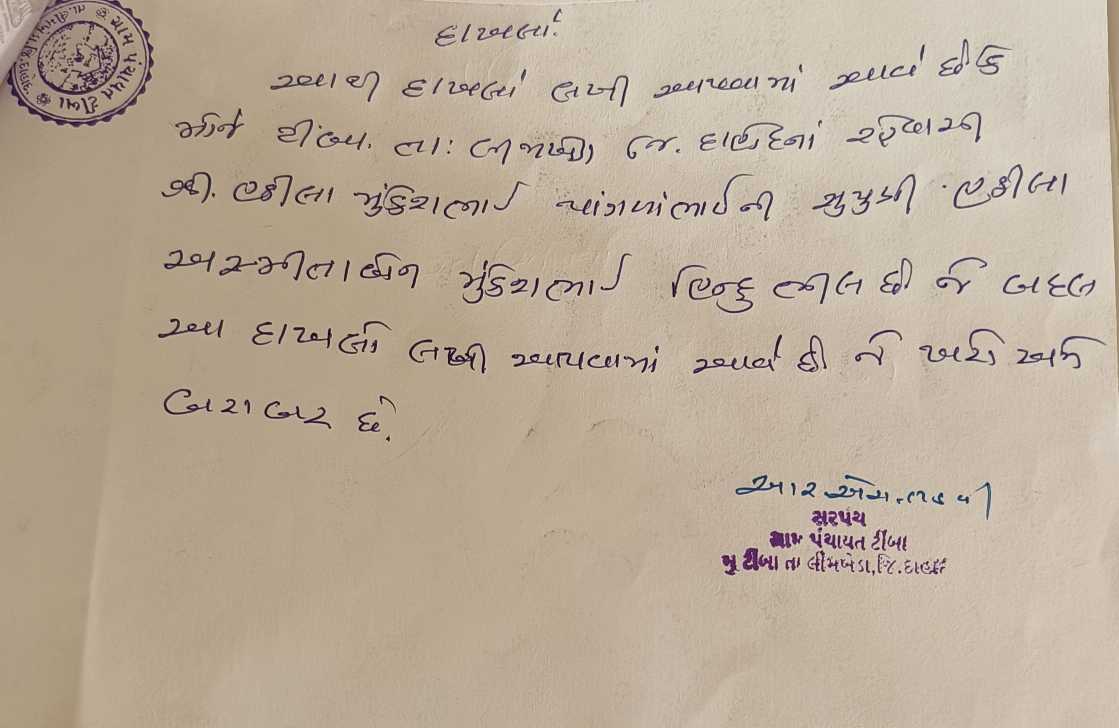 ગ્રામ પંચાયત ટીંબા
દાખલો.
આથી દાખલો લખી આપવામાં આવે છે કે
મોજે ટીંબા. તા: લીમખેડા, જિ. દાહોદનાં રહેવાસી
શ્રી. હઠીલા મુકેશભાઈ ની સુપુત્રી હઠીલા
અસ્મીતાબેન મુકેશભાઈ હિન્દુ ભીલ છે જે બદલ
આ દાખલો લખી આપવામાં આવે છે જે ખરો અને
બરાબર છે.
આર એસ
સરપંચ
ગ્રામ પંચાયત ટીંબા
મુ ટીંબા તા લીમખેડા,જિ.દાહોદ